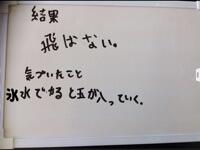 結果
飛ばない。
気づいたこと
氷水でやると玉が入っていく。